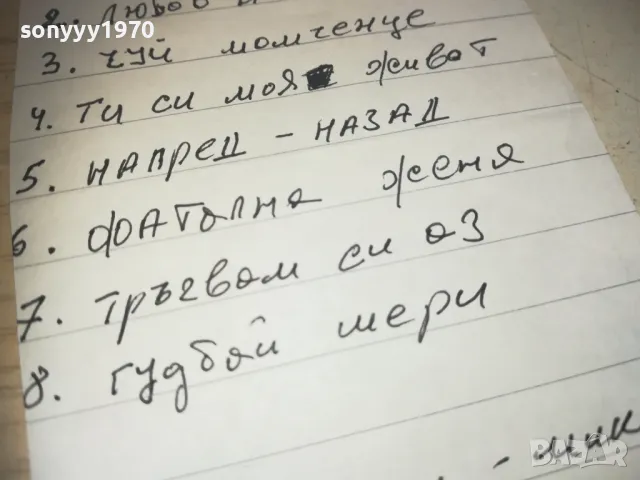 sonyyy1970
2. любов
3. чуй момченце
4. ти си моя живот
5. напред - назад
6. фатална женя
7. тръгвам си аз
8. гудбай мери
BAZAR